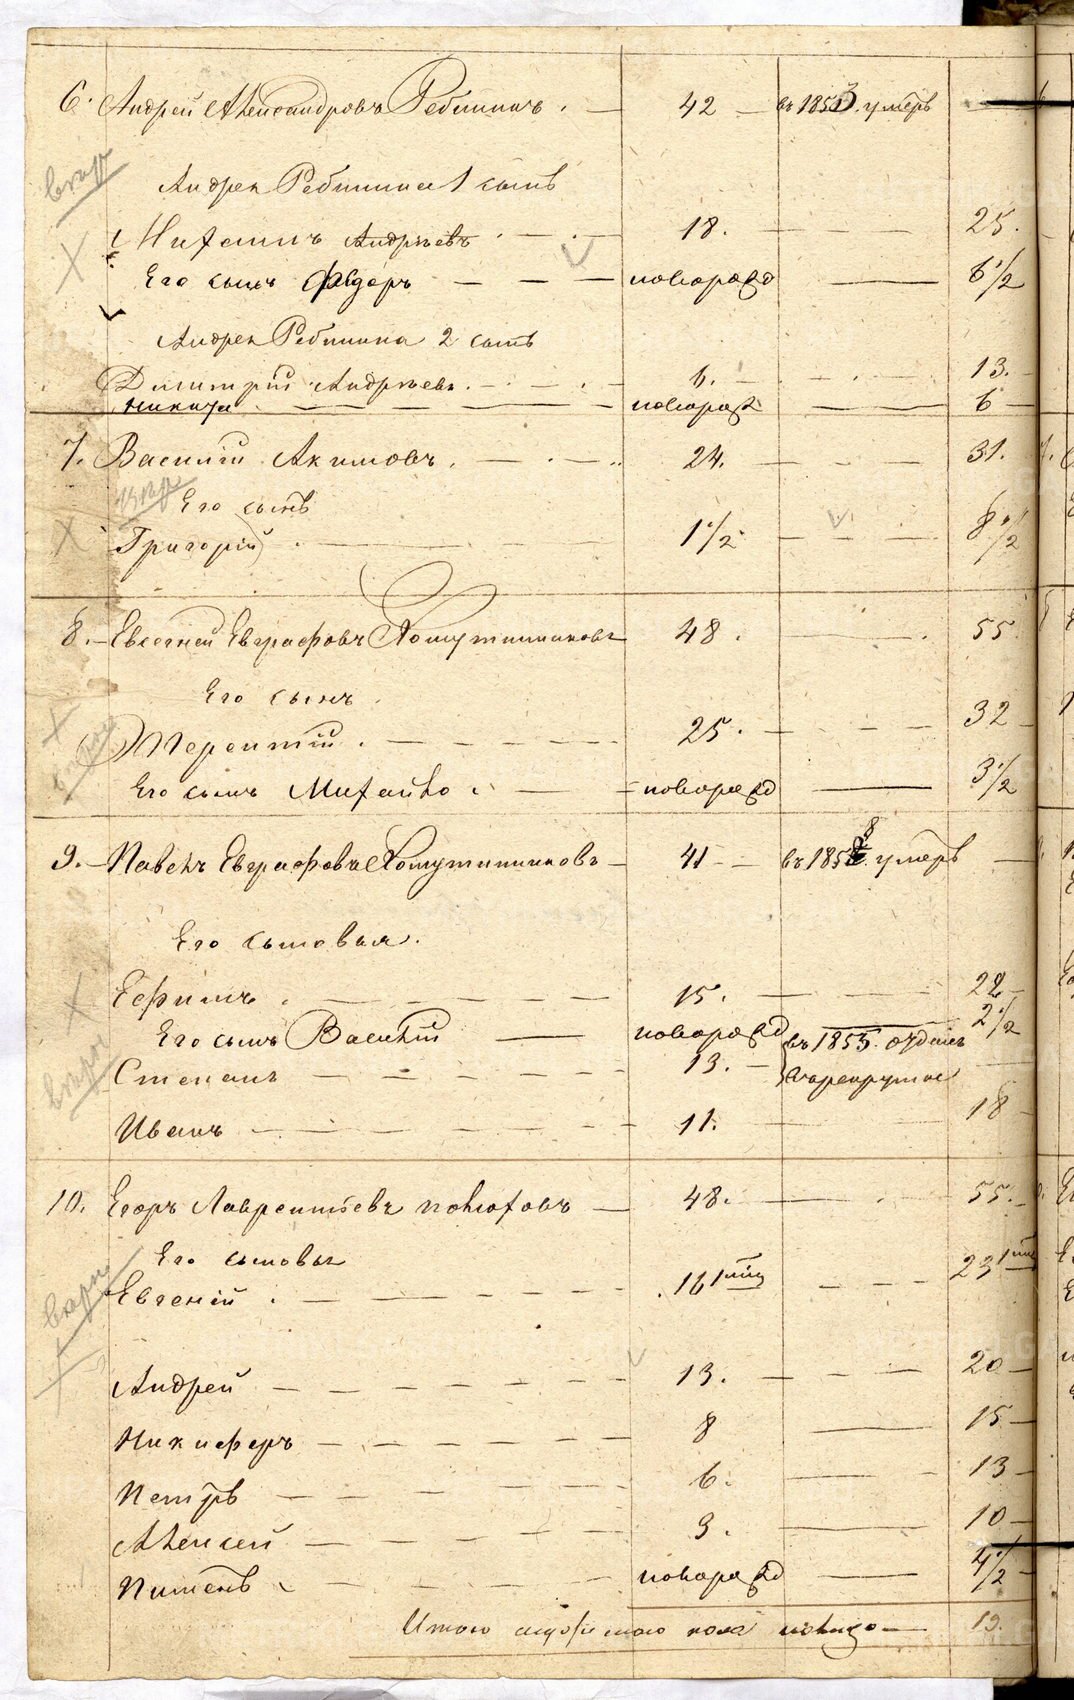 6. Андрей Александровъ Ребининъ. — 42 — въ 1853. умеръ —
Андрея Ребинина 1 сынъ
Михаилъ Андреевъ 18. — 25.
Его сынъ Федоръ — — — новорожд — 6 1/2
Андрея Ребинина 2 сынъ
Димитрій Андреевъ 6. — 13.
Никита — новорож — 6
7. Василій Акимовъ. — 24. — 31.
Его сынъ
Григорій 1 1/2 — 8 1/2
8. — Евсегней Евграфовъ Хомутинниковъ 48. — 55.
Его сынъ
Терентій. — 25. — 32
Его сынъ Михайло — новорожд — 3 1/2
9. — Павелъ Евграфовъ Хомутинниковъ — 41 — въ 1858 умеръ —
Его сыновья.
Ефимъ — 15. — 22
Его сынъ Василій — новорожд — 2 1/2
Степанъ — 13. — въ 1855. отданъ
в рекруты
Иванъ — 11. — 18
10. Егоръ Лаврентьевъ Полюховъ — 48. — 55.
Его сыновья
Евгеній. — 16 — 23
Андрей — 13. — 20
Никифоръ — 8 — 15
Петръ — 6. — 13
Алексей — 3. — 10
Пименъ — новорожд — 4 1/2
Итого мужескаго пола налицо — 19.